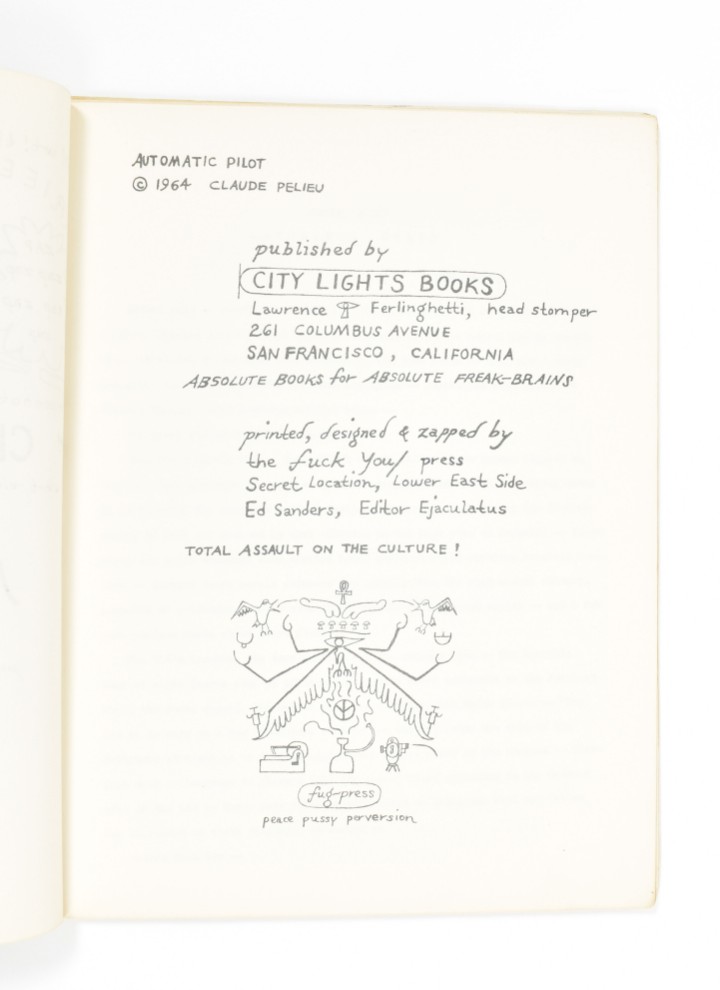 AUTOMATIC PILOT
© 1964 CLAUDE PELIEU
published by
CITY LIGHTS BOOKS
Lawrence Ferlinghetti, head stomper
261 COLUMBUS AVENUE
SAN FRANCISCO, CALIFORNIA
ABSOLUTE BOOKS for ABSOLUTE FREAK-BRAINS
printed, designed & zapped by
the fuck you/ press
Secret Location, Lower East Side
Ed Sanders, Editor Ejaculatus
TOTAL ASSAULT ON THE CULTURE!
fug-press
peace pussy perversion